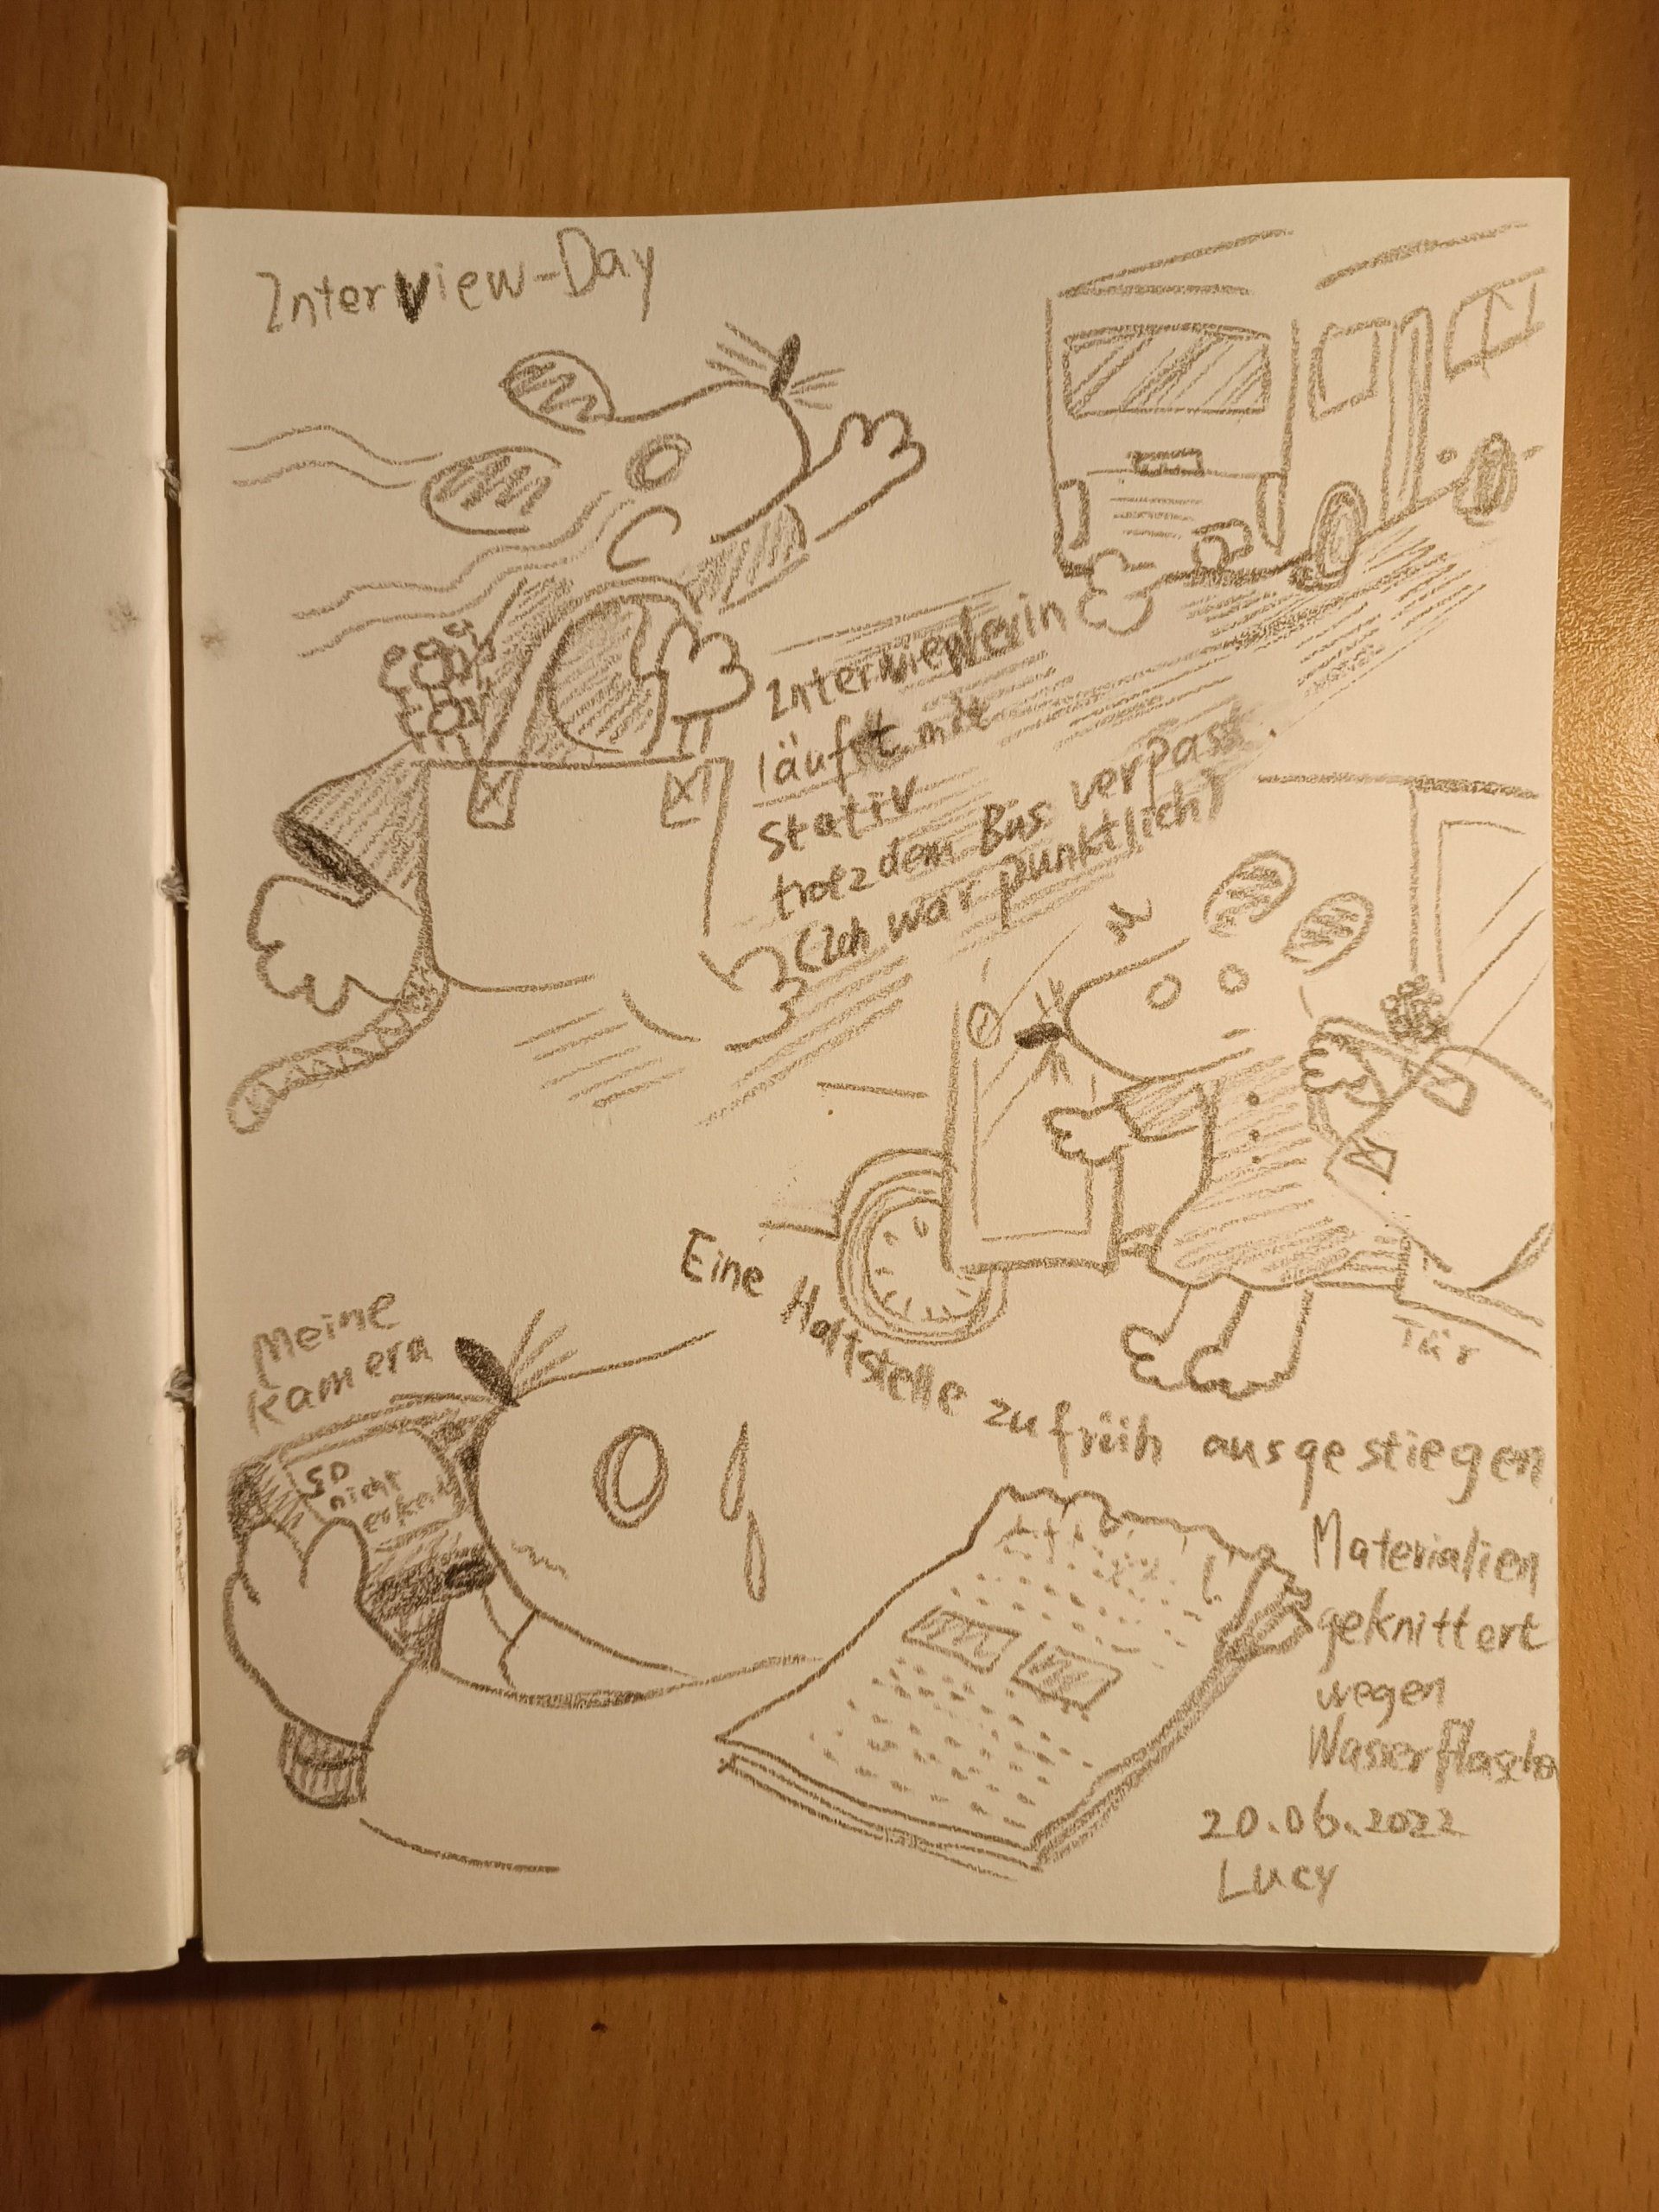 Interview-Day
Interviewerin
läuft mit
Stativ
trotzdem Bus verpasst.
(Ich war pünktlich)
Tür
Eine Haltstelle zu früh ausgestiegen
Meine
Kamera
SD
nicht
Materialien
geknittert
wegen
Wasserflasche
20.06.2022
Lucy